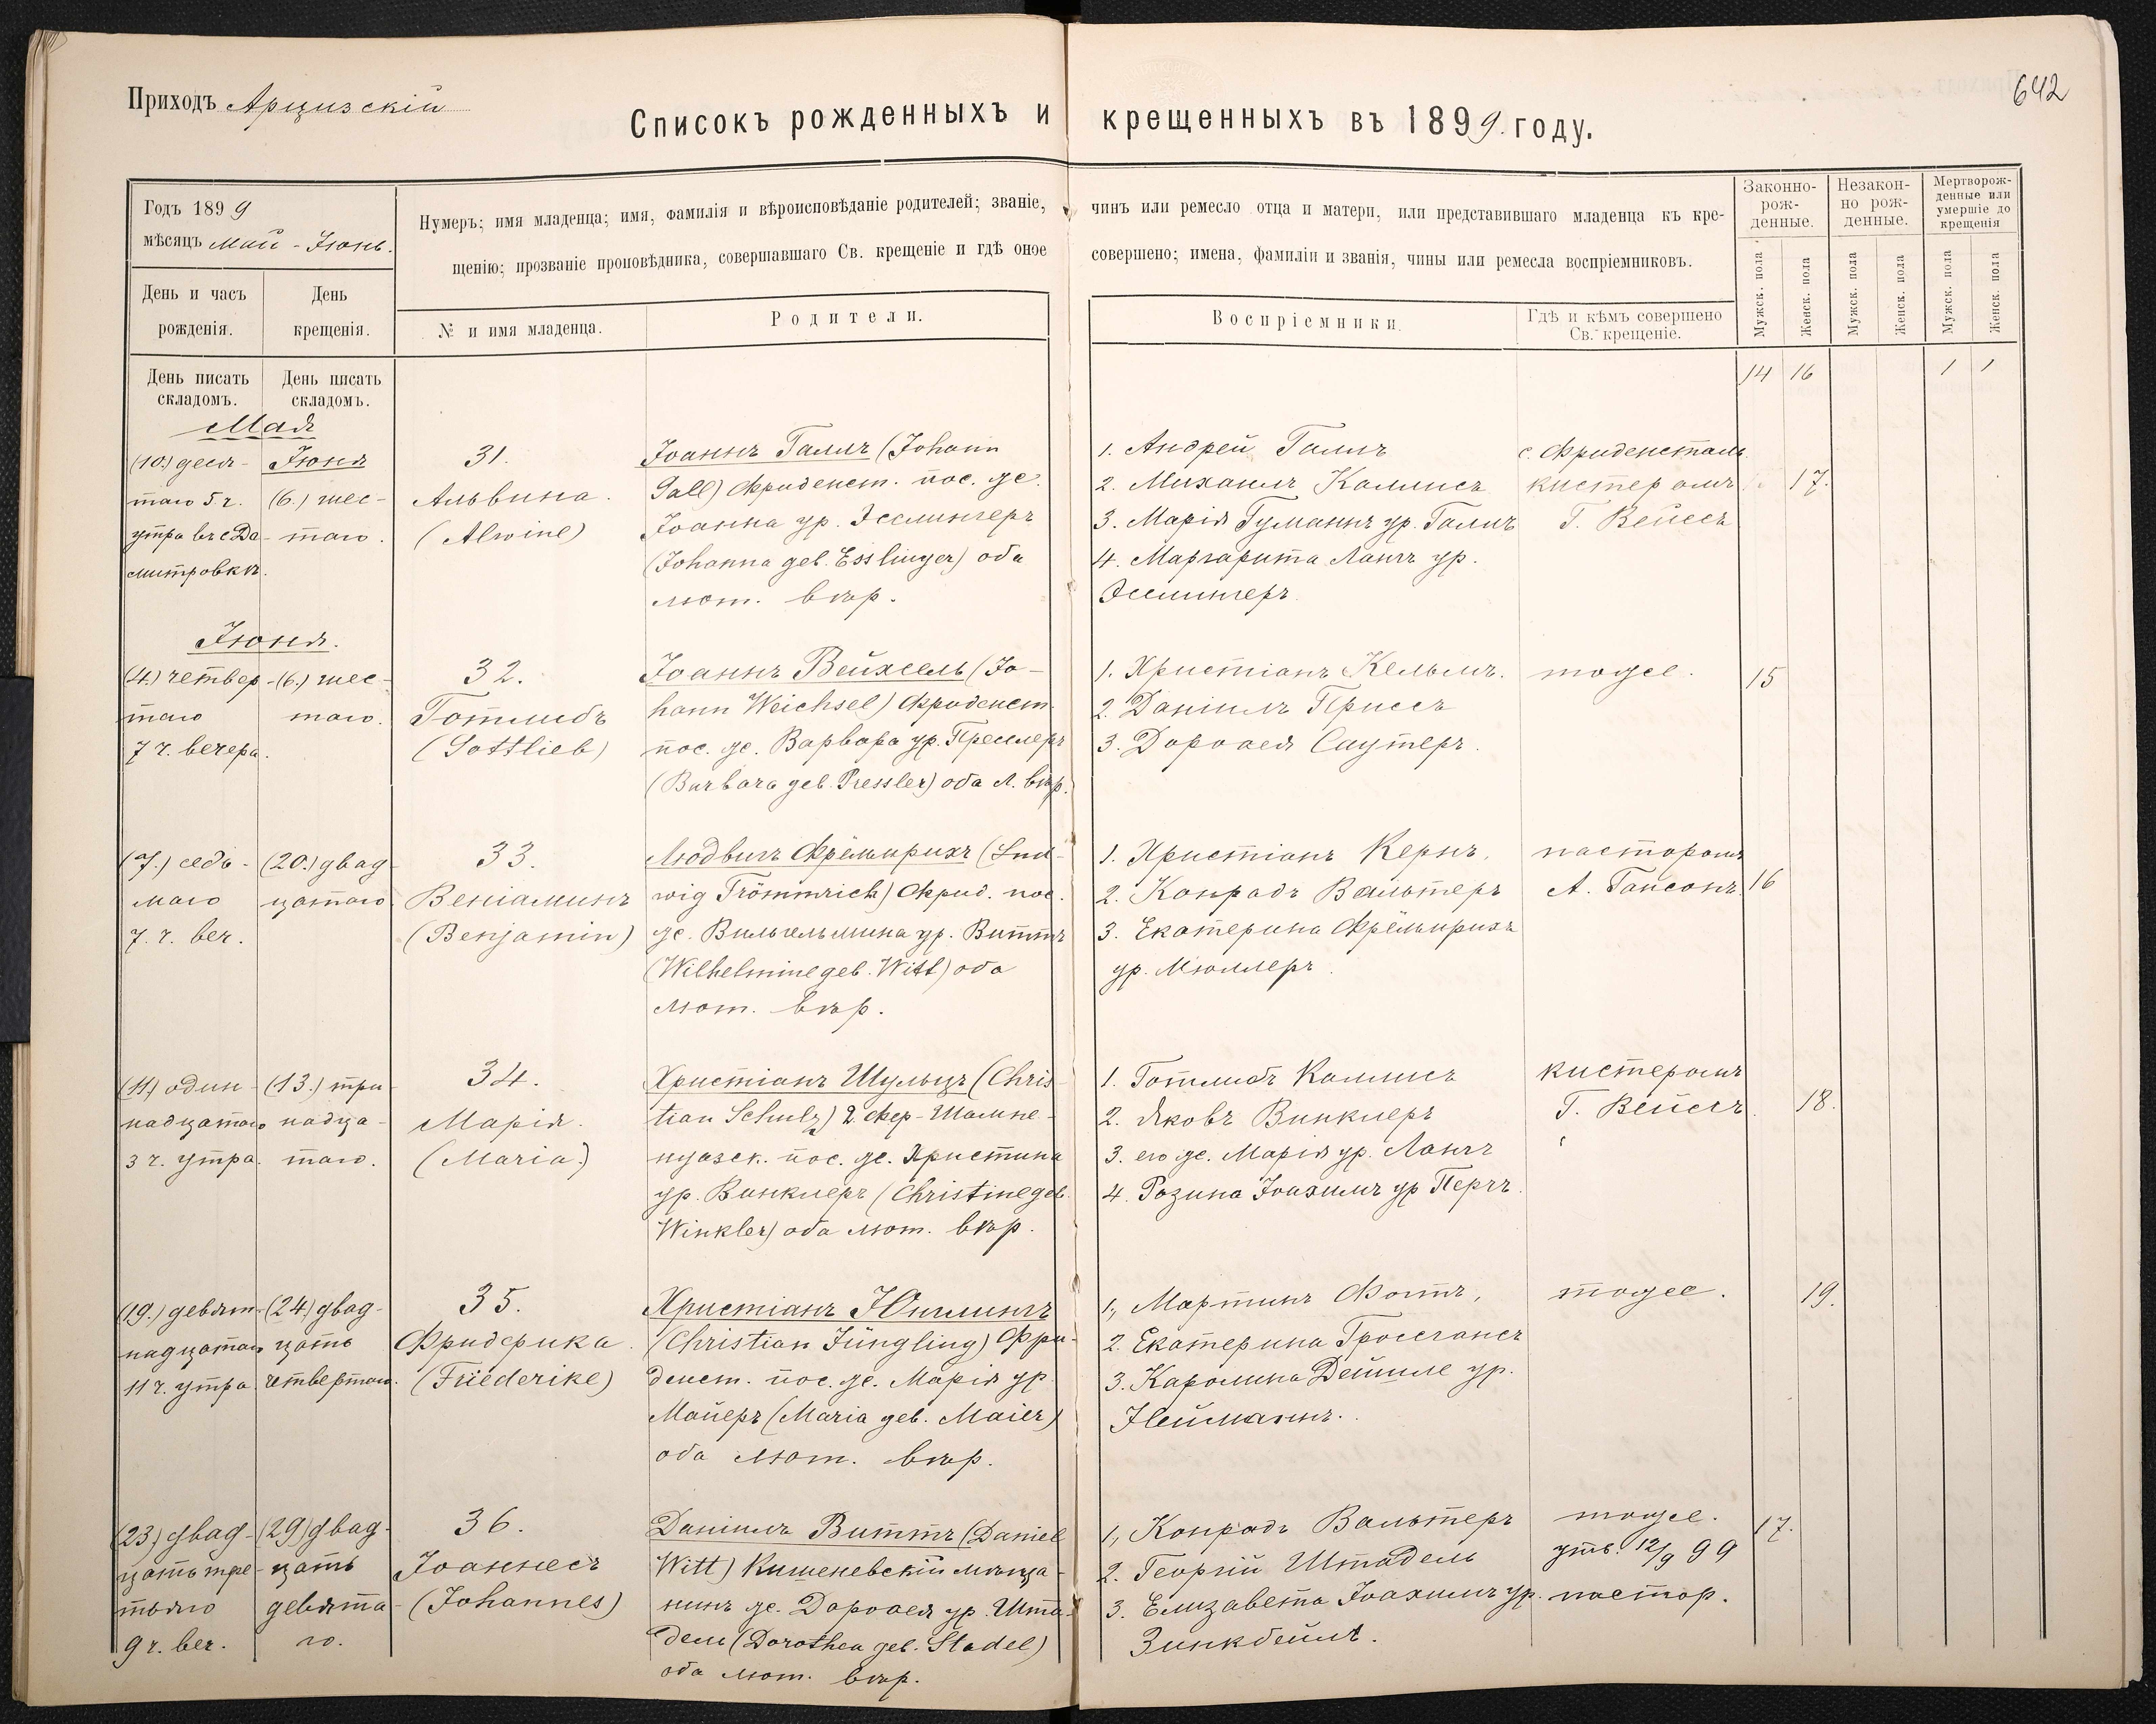 Приходъ Арцизскій
642
Списокъ рожденныхъ и крещенныхъ въ 1899 году.
Годъ 1899
мѣсяцъ Май - Іюнь.
День и часъ рожденія.
День крещенія.
Нумеръ; имя младенца; имя, фамилія и вѣроисповѣданіе родителей; званіе, чинъ или ремесло отца и матери, или представившаго младенца къ кре-
щенію; прозваніе проповѣдника, совершавшаго Св. крещеніе и гдѣ оное совершено; имена, фамиліи и званія, чины или ремесла воспріемниковъ.
№ и имя младенца.
Родители.
Воспріемники.
Гдѣ и кѣмъ совершено
Св. крещеніе.
Законно-
рож-
денные.
Незакон-
но рож-
денные.
Мертворож-
денные или
умершіе до
крещенія
Мужск. пола
Женск. пола
Мужск. пола
Женск. пола
Мужск. пола
Женск. пола
День писать
складомъ.
День писать
складомъ.
14 16 1 1
Мая
(10.) деся-
таго 5 ч.
утра въ с Да-
митровкѣ.
Іюня
(6.) шес-
таго.
31.
Альвина.
(Alwine)
Іоаннъ Галлъ (Johann
Gall) Фриденст. пос. же.
Іоанна ур. Эсслингеръ
(Johanna geb. Esslinger) оба
лют. вѣр.
1. Андрей Галлъ
2. Михаилъ Каллисъ
3. Марія Гуманнъ ур. Галлъ
4. Маргарита Лангъ ур.
Эсслингеръ
с. Фриденсталь
кистеромъ
Г. Вейссъ
17.
Іюня.
(4.) четвер-
таго
7 ч. вечера.
(6.) шес-
таго.
32.
Готлибъ
(Gottlieb)
Іоаннъ Вейхсель (Jo-
hann Weichsel) Фриденст.
пос. же. Варвара ур. Пресслеръ
(Barbara geb. Pressler) оба л. вѣр.
1. Христіанъ Кельмъ.
2. Даніилъ Приссъ
3. Доротея Саутеръ.
тоже.
15
(7.) седь-
маго
7. ч. веч.
(20.) двад-
цатаго
33.
Веніаминъ
(Benjamin)
Людвигъ Фрёмрихъ (Lud-
wig Frömmrich) Фрид. пос.
же. Вильгельмина ур. Виттъ
(Wilhelmine geb. Witt) оба
лют. вѣр.
1. Христіанъ Кернъ,
2. Конрадъ Вальтеръ
3. Екатерина Фрёмрихъ
ур. Мюллеръ.
пасторомъ
А. Гансонъ.
16
(11.) один-
надцатаго
3 ч. утра.
(13.) три-
надца-
таго.
34.
Марія.
(Maria.)
Христіанъ Шульцъ (Chris-
tian Schulz) 2. Фер-Шампе-
нуазск. пос. же. Христина
ур. Винклеръ (Christine geb.
Winkler) оба лют. вѣр.
1. Готлибъ Каллисъ
2. Яковъ Винклеръ
3. его же. Марія ур. Лангъ
4. Розина Іоахимъ ур Перчъ.
кистеромъ
Г. Вейссъ.
18.
(19.) девят-
надцатаго
11 ч. утра.
(24.) двад-
цать
четвертаго.
35.
Фридерика.
(Friederike)
Христіанъ Юнглингъ
(Christian Jüngling) Фри-
денст. пос. же. Марія ур.
Майеръ (Maria geb. Maier)
оба лют. вѣр.
1., Мартинъ Фоттъ,
2. Екатерина Гроссгансъ
3. Каролина Дейшле ур.
Нейманнъ.
тоже.
19.
(23.) двад-
цать тре-
тьяго
9 ч. веч.
(29) двад-
цать
девята-
го.
36.
Іоаннесъ
(Johannes)
Даніилъ Виттъ (Daniel
Witt) Кишеневскій мѣща-
нинъ же. Доротея ур. Шта-
дель (Dorothea geb. Stadel)
оба лют. вѣр.
1., Конрадъ Вальтеръ
2. Георгій Штадель
3. Елизавета Іоахимъ ур.
Зинкбейль.
тоже.
утв. 12/9 99
пастор.
17.